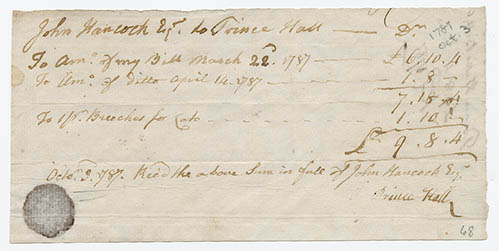 John Hancock Esqr. to Prince Hall — Dr.
1787
Oct. 3
To Amo. of my Bill March 22d. 1787 — £6.10.4
To Amo. of Ditto April 14. 1787 — 1.8 –
7.18.4
To 1 Pr. Breeches for Cato — 1.10.
£ 9.8.4
Octo. 3. 1787. Rec'd the above Sum in full of John Hancock Esqr.
Prince Hall
68